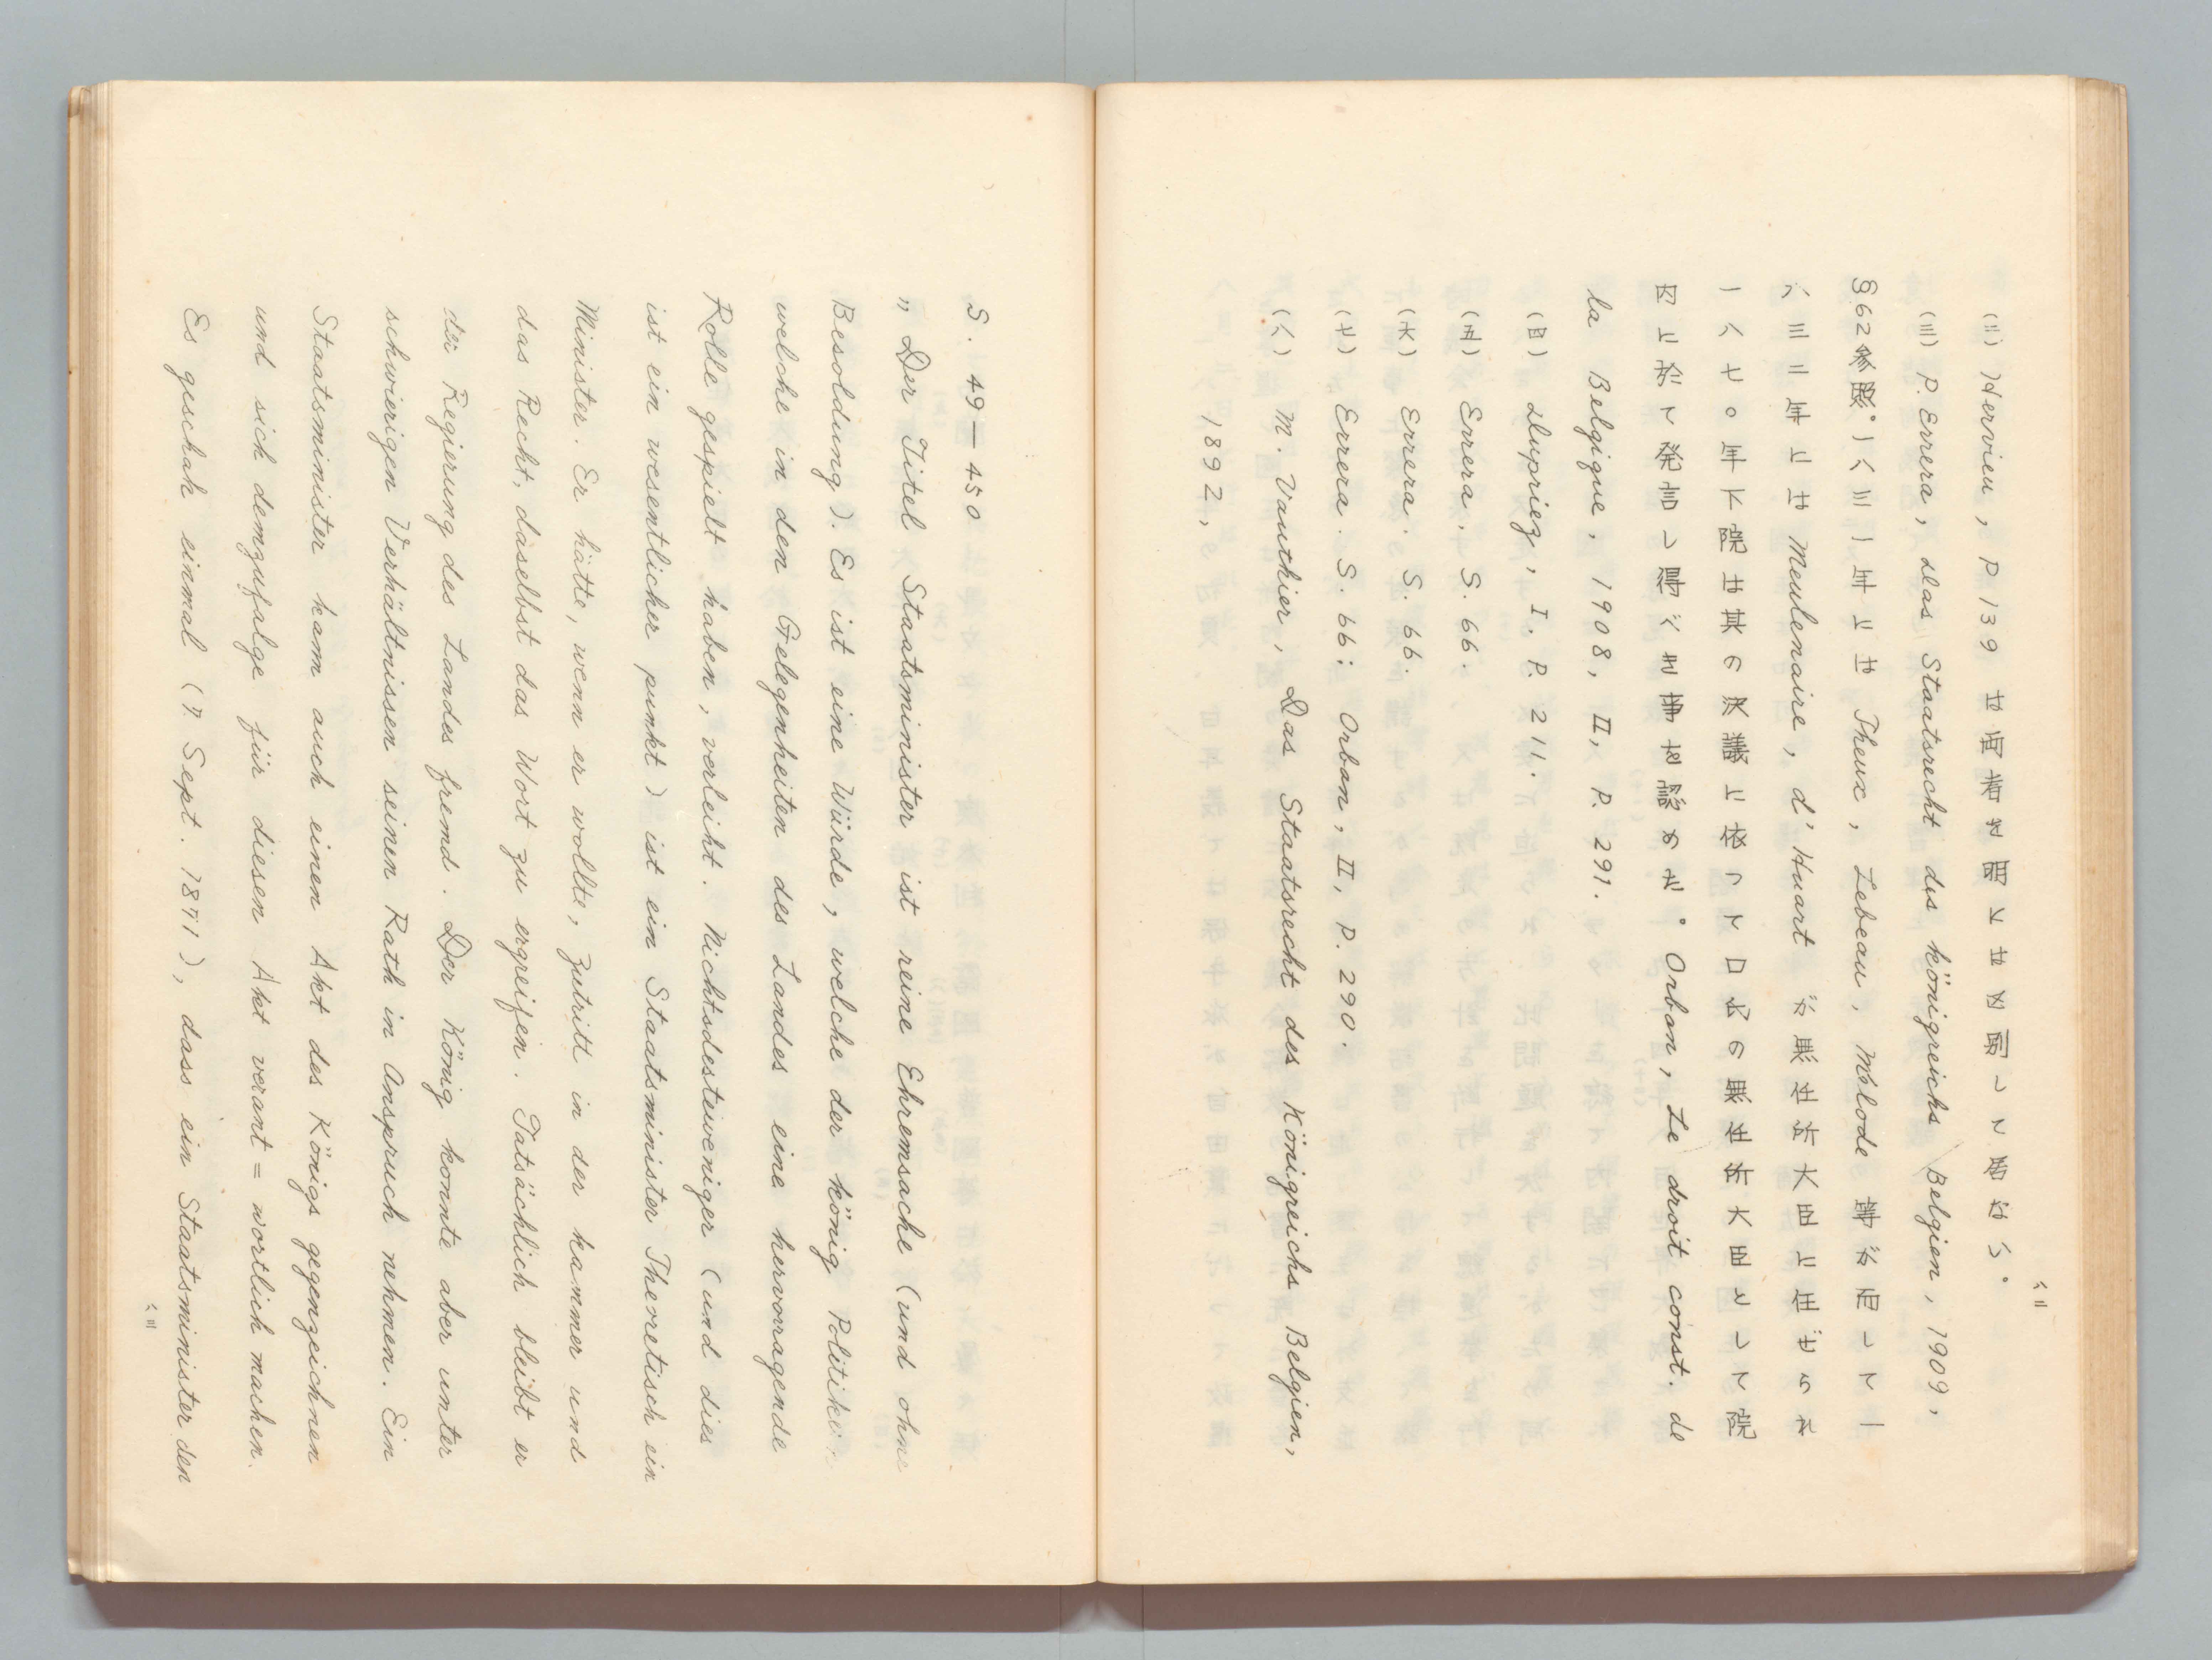 八二
(二) Hervieu, P 139 は両者を明には区別して居ない。
(三) P. Errera, Das Staatsrecht dus königreichs Belgien, 1909,
§62参照。)八三一年には Theux, Lebeau, Mérode 等が而して一
八三二年には Meulenaire, d'Huart が無任所大臣に任ぜられ
一八七〇年下院は其の決議に依って口氏の無任所大臣として院
内に於て発言し得べき事を認めた。Orban, Le droit const. de
la Belgique, 1908, II, P. 291.
(四) Dupriez, I. P. 211.
(五) Errera. S. 66.
(六) Errera. S. 66.
(七) Errera. S. 66; Orban, II, P. 290.
(八) M. Vauthier, Das Staatsrecht des Königreichs Belgien,
1892,
S. 49—450
„Der Titel Staatsminister ist reine Ehremsache (und ohne
Besoldung). Es ist eine Würde, welche der König Politikern
welche in den Gelegenheiten des Landes eine hervorragende
Rolle gespielt haben, verleiht. Nichtsdesteiveniger (und dies
ist ein wesentlicher punkt) ist ein Staatsminister Thevretisch ein
Minister. Er hätte, wenn er wollte, Zutritt in der kammer und
das Recht, daselbst das Wort zu ergreifen. Tatsächlich bleibt er
der Regierung des Landes fremd. Der König konnte aber unter
schwierigen Verhältnissen seinen Rath in Anspruch nehmen. Ein
Staatsminister kann auch einen Akt des Königs gegenzeichnen
und sich demzufalge für diesen Akt verant=wortlich machen.
Es geschah einmal (7. Sept. 1871), dass ein Staatsminister den
八三